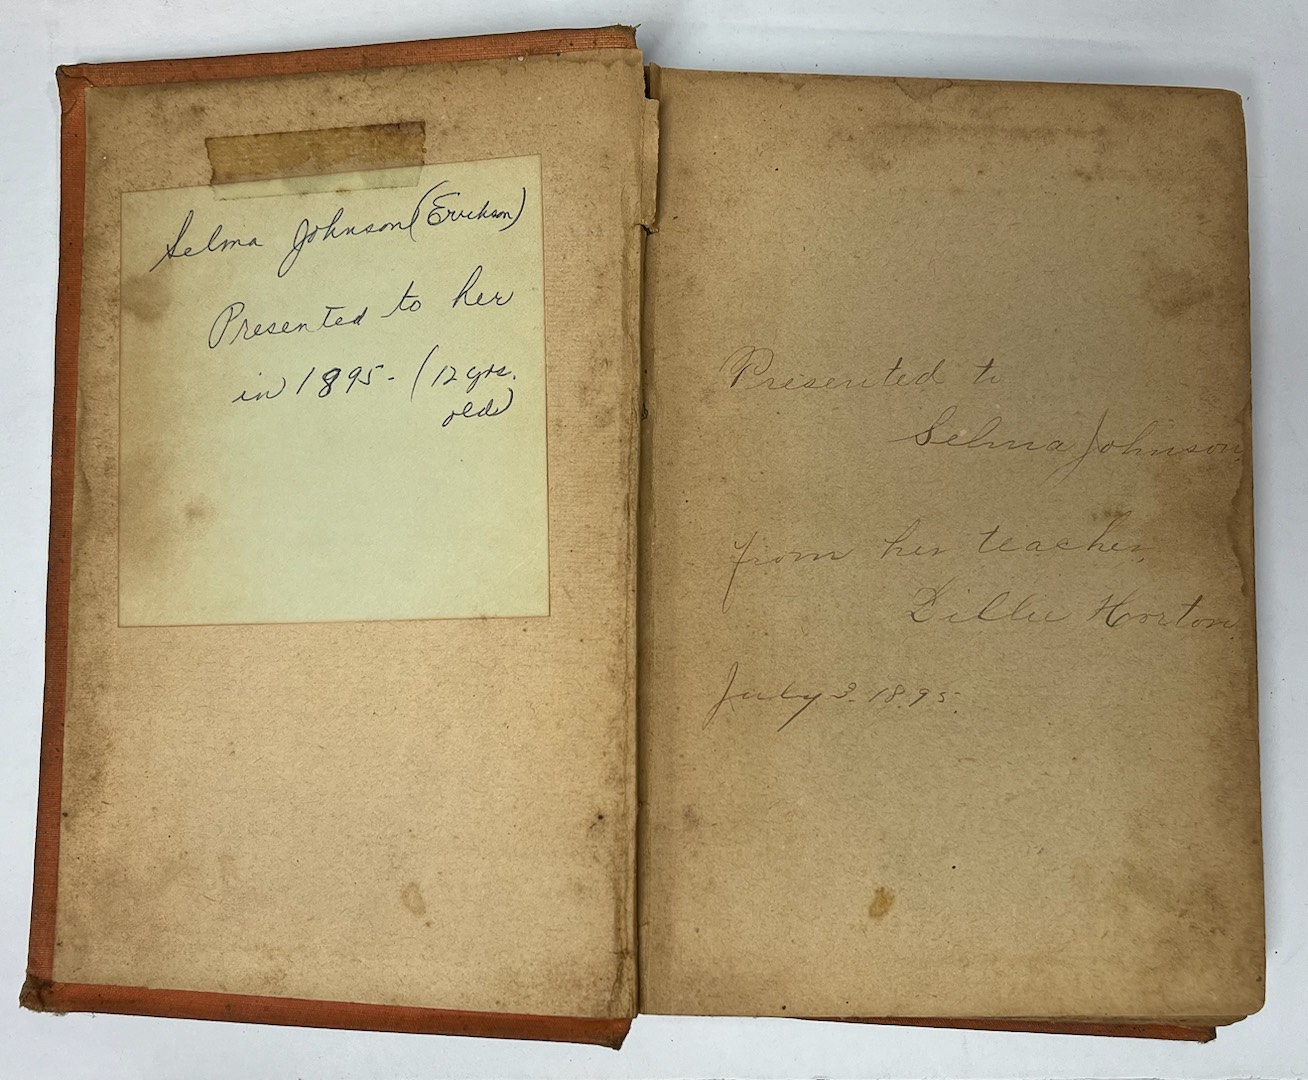 Selma Johnson (Errickson)
Presented to her
in 1895 - (12 yrs.
old)
Presented to
Selma Johnson,
from her teacher,
Lillie Horton.
July 3. 1895.